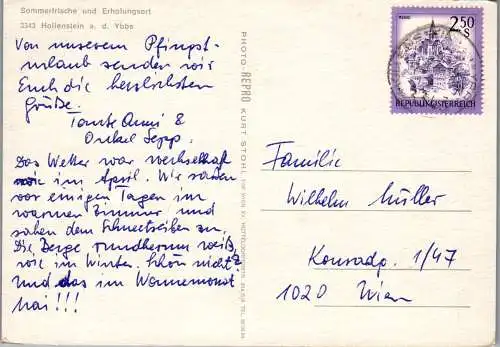 Sommerfrische und Erholungsort
3343 Hollenstein a. d. Ybbs
Von unserem Pfingst-
urlaub senden wir
Euch die herzlichsten
Grüße.
Tante Anni &
Onkel Sepp.
Das Wetter war wechselhaft
wie im April. Wir saßen
vor einigen Tagen im
warmen Zimmer und
sahen dem Schneetreiben zu,
Die Berge rundherum weiß,
wie im Winter. Schön nicht?
Und das im Wonnemonat
Mai!!!
PHOTO REPRO KURT STOHL
2.50
S
REPUBLIK ÖSTERREICH
Familie
Wilhelm Müller
Konradg. 1/47
1020 Wien